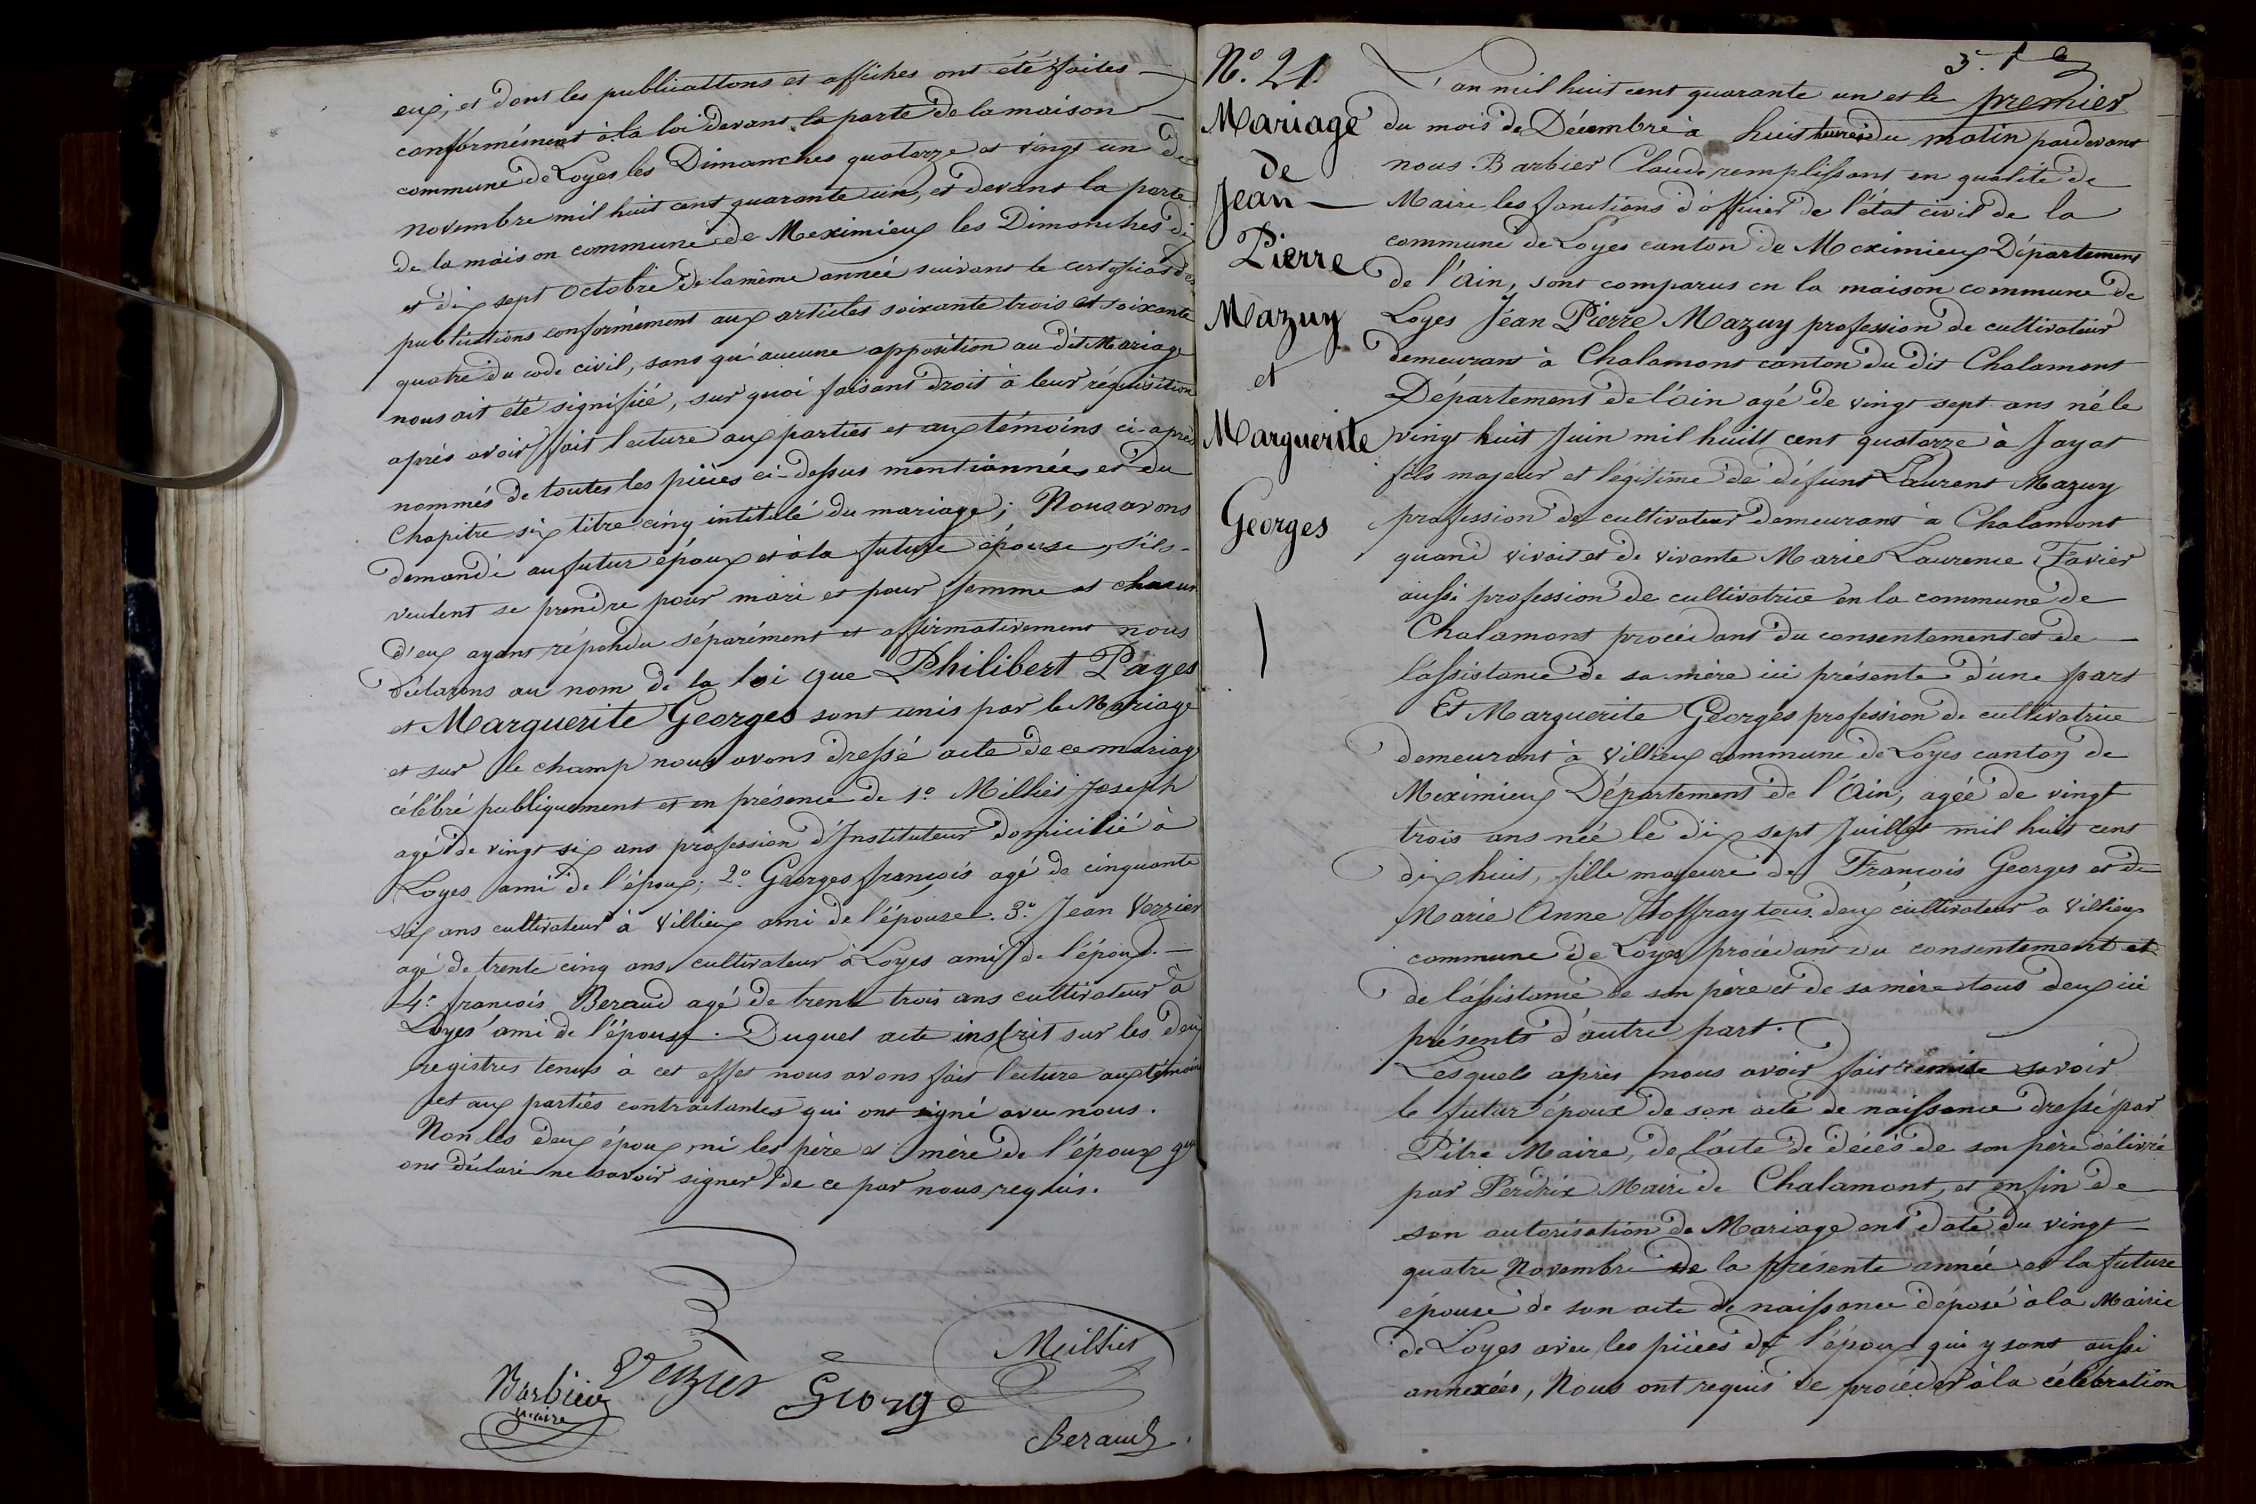 eux, et dont les publications et affiches ont été faites
conformément à la loi devant la porte de la maison
commune de Loyes les Dimanches quatorze et vingt un de
novembre mil huit cent quarante un, et devant la porte
de la maison commune de Meximieux les Dimanches
et dix sept Octobre de la même année suivant le certificat de
publications conformément aux articles soixante trois et soixante
quatre du code civil, sans qu'aucune opposition au dit Mariage
nous ait été signifiée, sur quoi faisant droit à leur réquisition
après avoir fait lecture aux parties et aux témoins ci-après
nommés de toutes les pièces ci-dessus mentionnées et du
Chapitre six titre cinq intitulé du mariage; Nous avons
demandé au futur époux et à la future épouse, s'ils
veulent se prendre pour mari et pour femme et chacun
d'eux ayant répondu séparément et affirmativement nous
déclarons au nom de la loi que Philibert Pages
et Marguerite Georges sont unis par le Mariage
et sur le champ nous avons dressé acte de ce mariage
célébré publiquement et en présence de 1º Milliet Joseph
agé de vingt six ans profession d'Instituteur domicilié à
Loyes ami de l'époux; 2º Georges françois agé de cinquante
six ans cultivateur à Villieux ami de l'épouse. 3º Jean Verzier
agé de trente cinq ans cultivateur à Loyes ami de l'époux.
4º françois Beraud agé de trente trois ans cultivateur à
Loyes ami de l'épouse. Duquel acte inscrit sur les deux
registres tenus à cet effet nous avons fait lecture aux témoins
et aux parties contractantes qui ont signé avec nous.
Non les deux époux, ni les père et mère de l'époux qui
ont déclaré ne savoir signer de ce par nous requis.
Barbier
maire
Verzier
George
Millier
Beraud
Nº. 21
Mariage
de
Jean
Pierre
Mazuy
et
Marguerite
Georges
L'an mil huit cent quarante un et le premier
du mois de Décembre à huit heures du matin pardevant
nous Barbier Claude remplissant en qualité de
Maire les fonctions d'officier de l'état civil de la
commune de Loyes canton de Meximieux Département
de l'Ain, sont comparus en la maison commune de
Loyes Jean Pierre Mazuy profession de cultivateur
demeurant à Chalamont canton du dit Chalamont
Département de l'Ain agé de vingt sept ans né le
vingt huit Juin mil huitt cent quatorze à Jayat
fils majeur et légitime de défunt Laurent Mazuy
profession de cultivateur demeurant à Chalamont
quand vivait et de vivante Marie Laurence Favier
aussi profession de cultivatrice en la commune de
Chalamont procédant du consentement et de
l'assistance de sa mère ici présente d'une part
Et Marguerite Georges profession de cultivatrice
demeurant à Villieux commune de Loyes canton de
Meximieux Département de l'Ain, agée de vingt
trois ans née le dix sept Juillet mil huit cent
dix huit, fille majeure de François Georges et de
Marie Anne Joffray tous deux cultivateur a Villieux
commune de Loyes procédant du consentement et
de l'assistance de son père et de sa mère tous deux ici
présents d'autre part.
Lesquels après nous avoir fait remise savoir
le futur époux de son acte de naissance dressé par
Pitre Maire, de l'acte de décès de son père délivré
par Perdrix Maire de Chalamont, et enfin de
son autorisation de Mariage ent date du vingt
quatre Novembre de la présente année et la future
épouse de son acte de naissance déposé à la Mairie
de Loyes avec les pièces de l'époux qui y sont aussi
annexées, Nous ont requis de procéder à la célébration